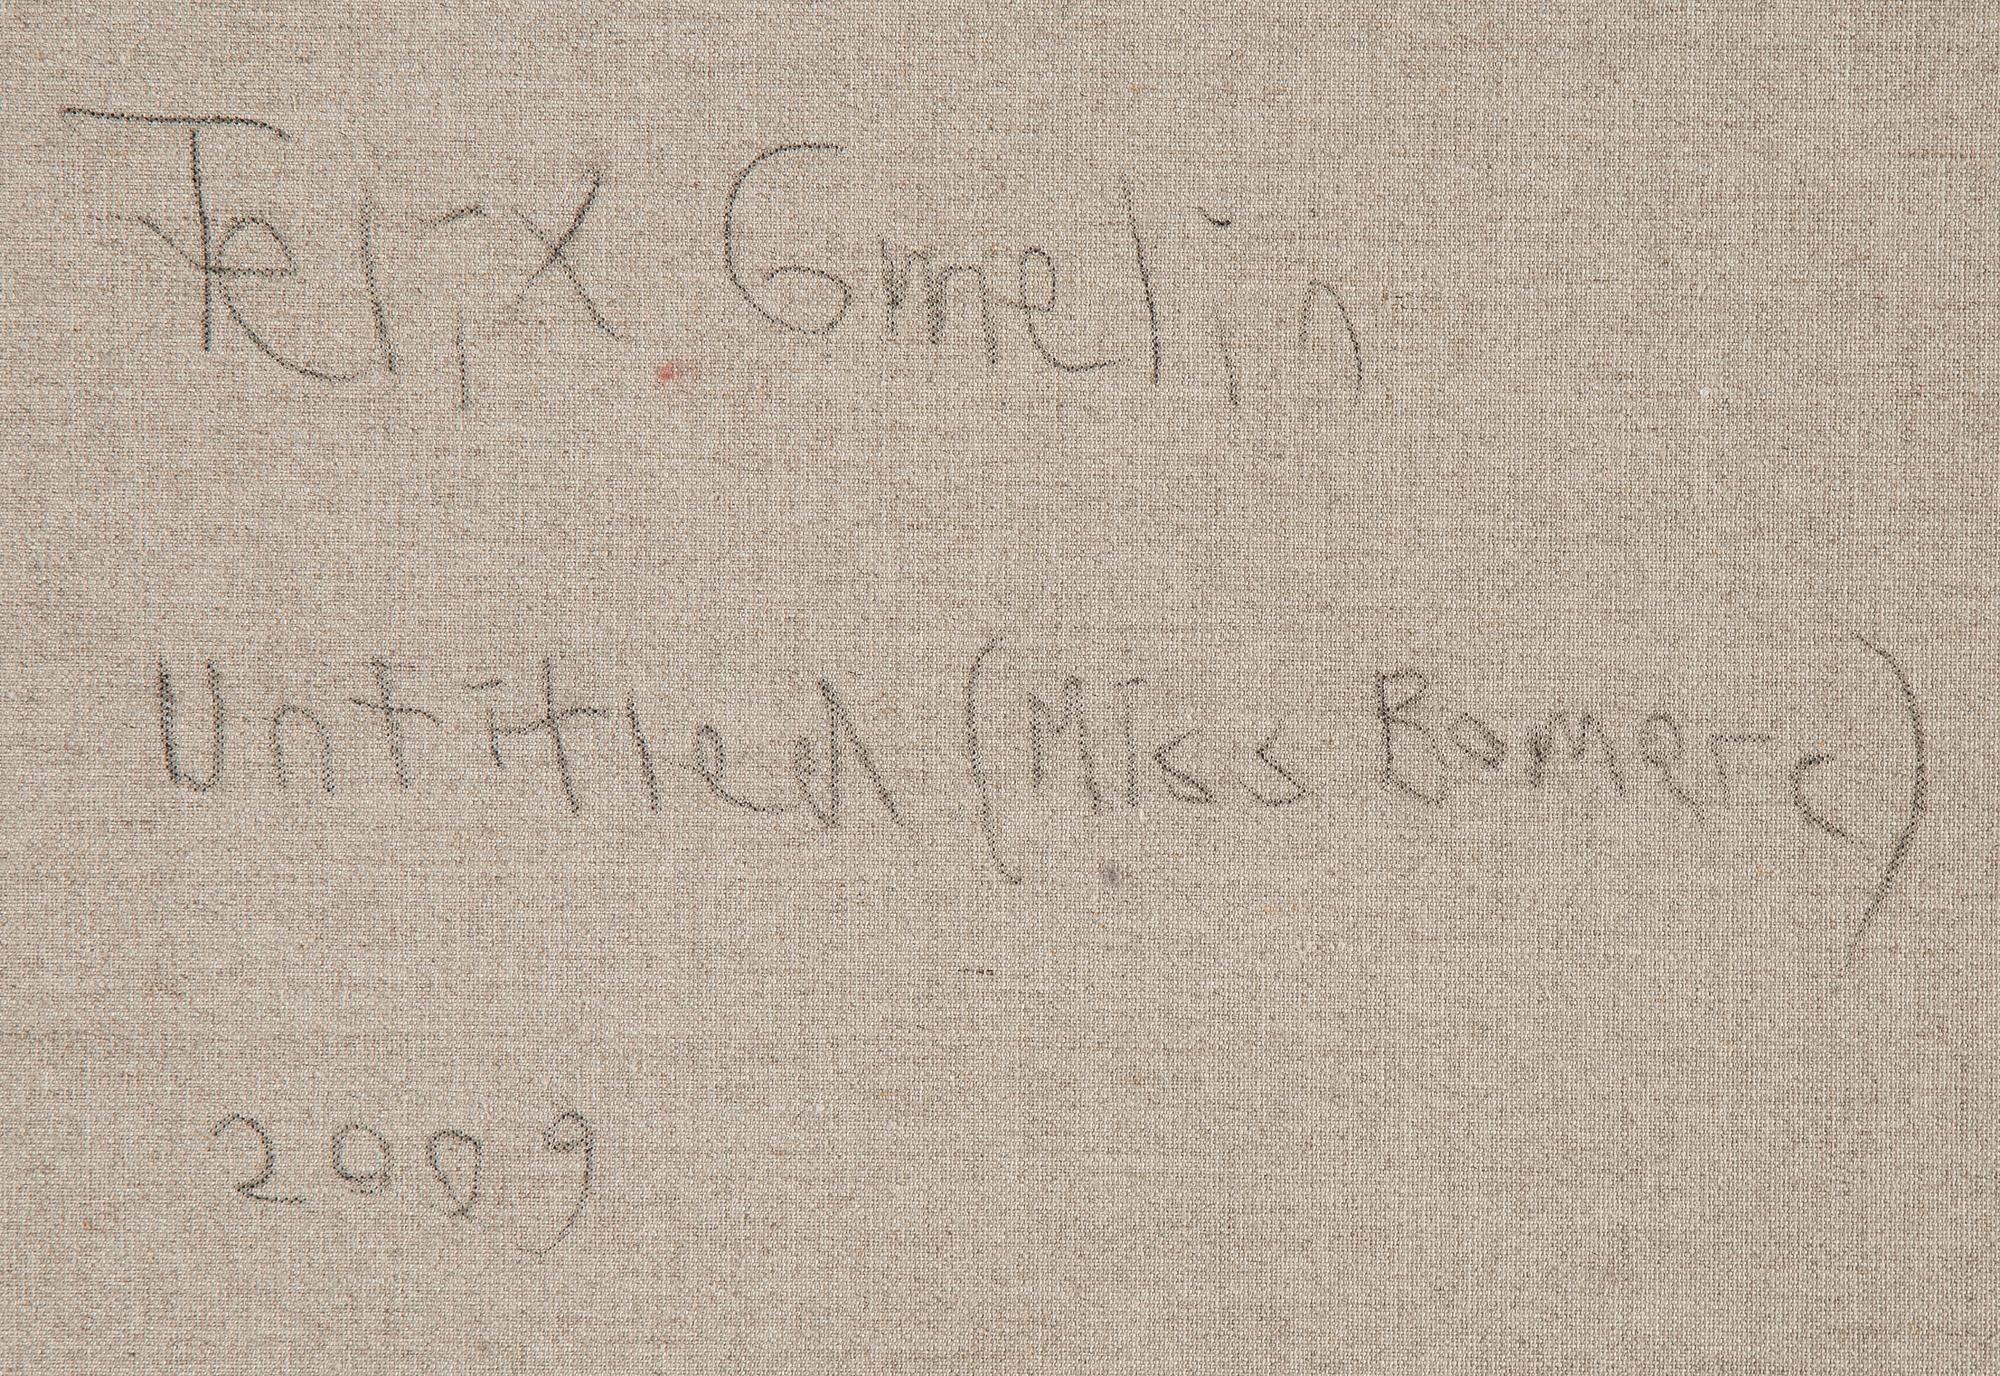 Felix Gmelin
Untitled (Miss Romero)
2009